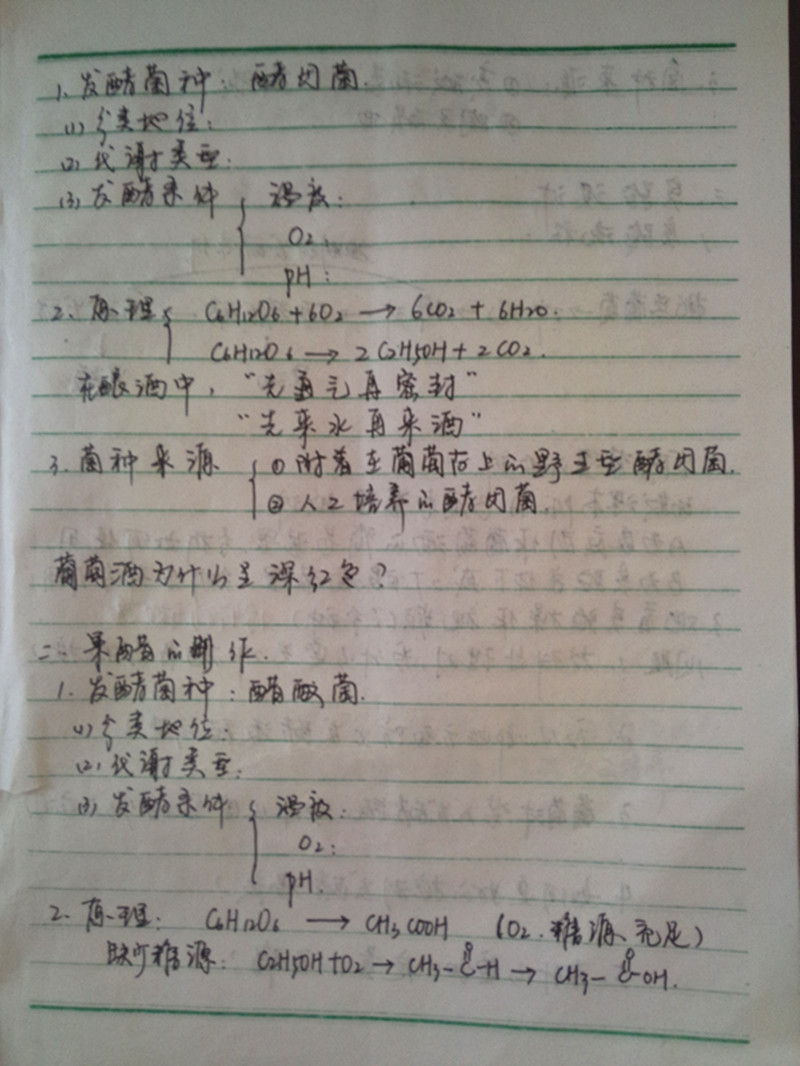 1. 发酵菌种：酵母菌.
(1) 分类地位：
(2) 代谢类型：
(3) 发酵条件 { 温度：
O2：
pH：
2. 原理 { C6H12O6+6O2 → 6CO2+6H2O.
C6H12O6 → 2C2H5OH+2CO2.
在酿酒中，“先通气再密封”
“先来水再来酒”
3. 菌种来源 { ① 附着在葡萄皮上的野生型酵母菌.
② 人工培养的酵母菌.
葡萄酒为什么呈深红色？
二. 果醋的制作.
1. 发酵菌种：醋酸菌.
(1) 分类地位：
(2) 代谢类型：
(3) 发酵条件 { 温度：
O2：
pH
2. 原理： C6H12O6 → CH3COOH (O2、糖源充足)
缺少糖源： C2H5OH+O2 → CH3-C-H → CH3-C-OH.